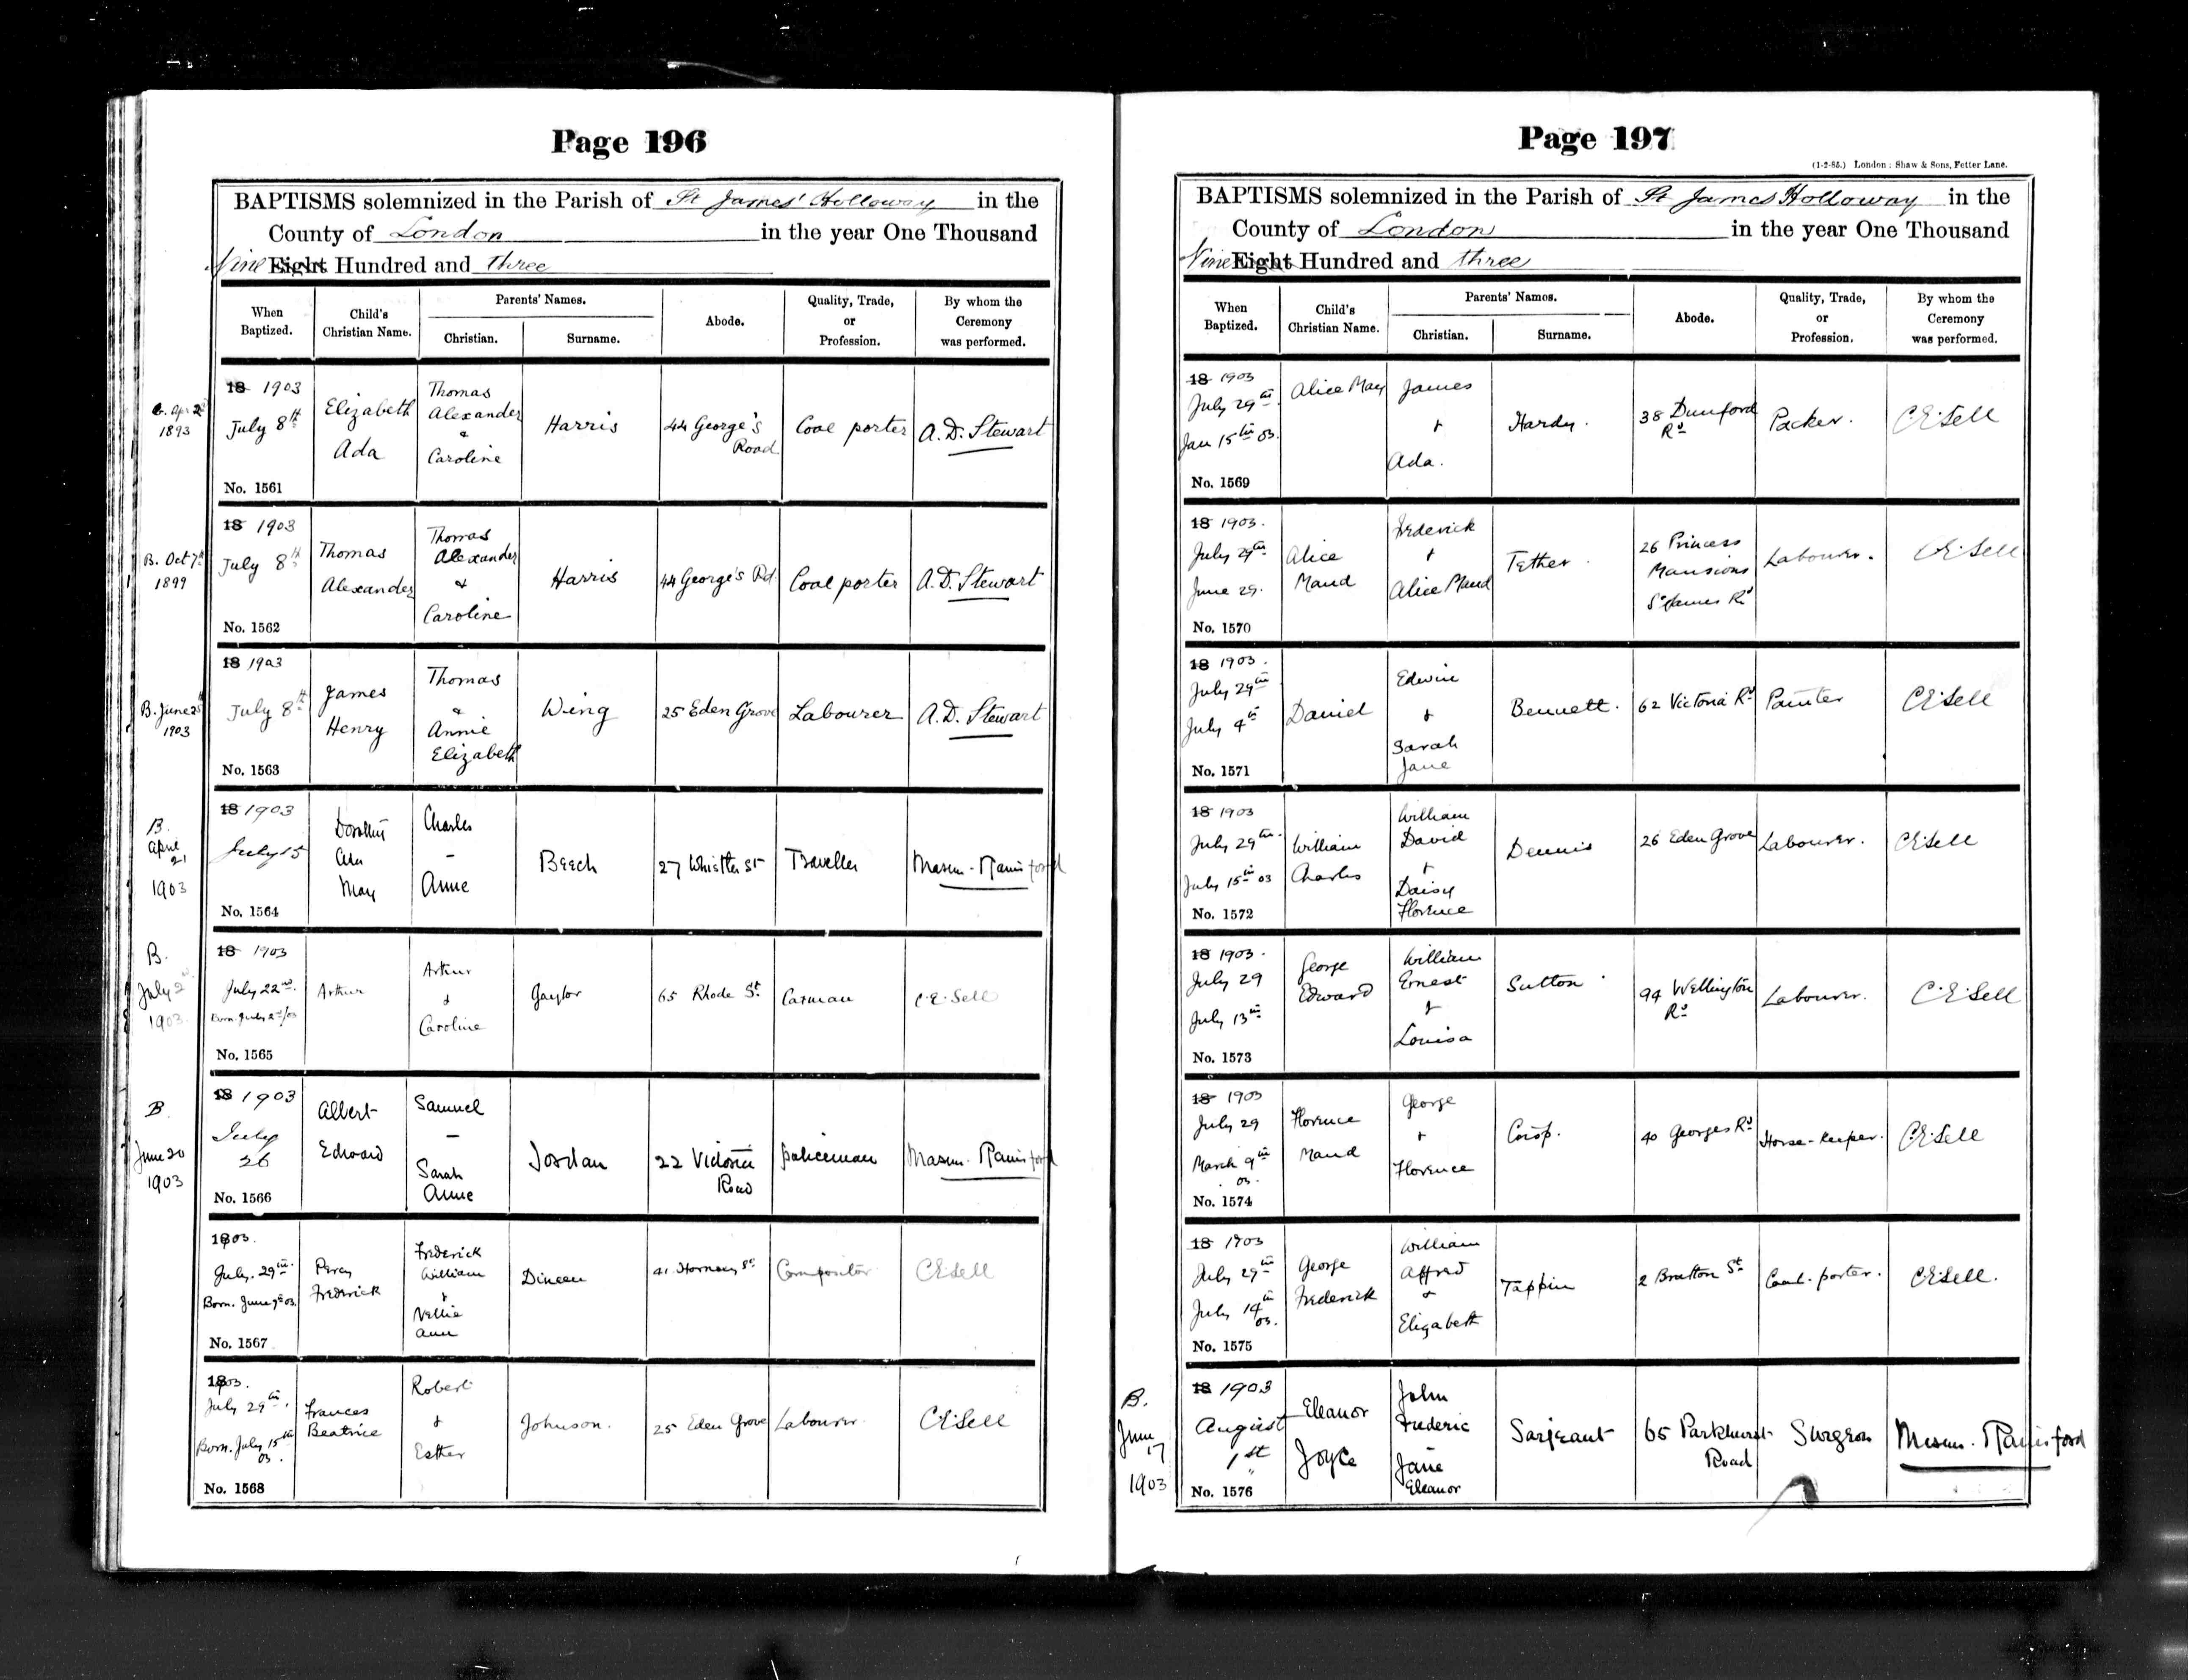 Page 196
BAPTISMS solemnized in the Parish of St James' Holloway in the
County of London in the year One Thousand
Nine Eight Hundred and three
When Baptized.
Child's Christian Name.
Parents' Names.
Christian.
Surname.
Abode.
Quality, Trade, or Profession.
By whom the Ceremony was performed.
B. Apr 2nd
1893
18 1903
July 8th
No. 1561
Elizabeth
Ada
Thomas
Alexander
&
Caroline
Harris
44 George's
Road
Coal porter
A.D. Stewart
B. Oct 7th
1899
18 1903
July 8th
No. 1562
Thomas
Alexander
Thomas
Alexander
&
Caroline
Harris
44 George's Rd
Coal porter
A.D. Stewart
B. June 25th
1903
18 1903
July 8th
No. 1563
James
Henry
Thomas
&
Annie
Elizabeth
Wing
25 Eden Grove
Labourer
A.D. Stewart
B.
April
21
1903
18 1903
July 15
No. 1564
Dorothy
Ada
May
Charles
-
Anne
Beech
27 Whistler St
Traveller
B.
July 2nd
1903
18 1903
July 22nd.
Born July 2nd/03
No. 1565
Arthur
Arthur
&
Caroline
Gaylor
65 Rhode St.
Carman
C.E. Sell
B
June 20
1903
18 1903
July
26
No. 1566
Albert
Edward
Samuel
-
Sarah
Anne
Jordan
22 Victoria
Road
policeman
1803.
July. 29th.
Born. June 7th 03.
No. 1567
Percy
Frederick
Frederick
William
&
Nellie
Ann
Dineen
41 Hornsey St.
Compositor
C.E. Sell
1803.
July 29th.
Born. July 15th
03.
No. 1568
Frances
Beatrice
Robert
&
Esther
Johnson.
25 Eden Grove
Labourer
C.E. Sell
Page 197
(1-2-85.) London: Shaw & Sons, Fetter Lane.
BAPTISMS solemnized in the Parish of St James Holloway in the
County of London in the year One Thousand
Nine Eight Hundred and three
When Baptized.
Child's Christian Name.
Parents' Names.
Christian.
Surname.
Abode.
Quality, Trade, or Profession.
By whom the Ceremony was performed.
18 1903
July 29th.
Jan 15th 03.
No. 1569
Alice May
James
+
Ada.
Hardy.
38 Dunford
Rd
Packer.
C.E. Sell
18 1903.
July 29th
June 29.
No. 1570
Alice
Maud
Frederick
+
Alice Maud
Tether.
26 Princess
Mansions
St James Rd
Labourer.
C.E. Sell
18 1903.
July 29th
July 4th
No. 1571
Daniel
Edwin
&
Sarah
Jane
Bennett.
62 Victoria Rd
Painter
C.E. Sell
18 1903
July 29th.
July 15th 03
No. 1572
William
Charles
William
David
+
Daisy
Florence
Dennis
26 Eden Grove
Labourer.
C.E. Sell
18 1903.
July 29
July 13th
No. 1573
George
Edward
William
Ernest
&
Louisa
Sutton
94 Wellington
Rd
Labourer.
C.E. Sell
18 1903
July 29
March 9th
03.
No. 1574
Florence
Maud
George
+
Florence
40 Georges Rd
Horse-keeper.
C.E. Sell
18 1903
July 29th
July 14th
03.
No. 1575
George
Frederick
William
Alfred
&
Elizabeth
Tappin
2 Bratton St
Coal-porter.
C.E. Sell.
B.
June
17
1903
18 1903
August
1st
No. 1576
Eleanor
Joyce
John
Frederic
Jane
Eleanor
Sarjeant
65 Parkhurst
Road
Surgeon